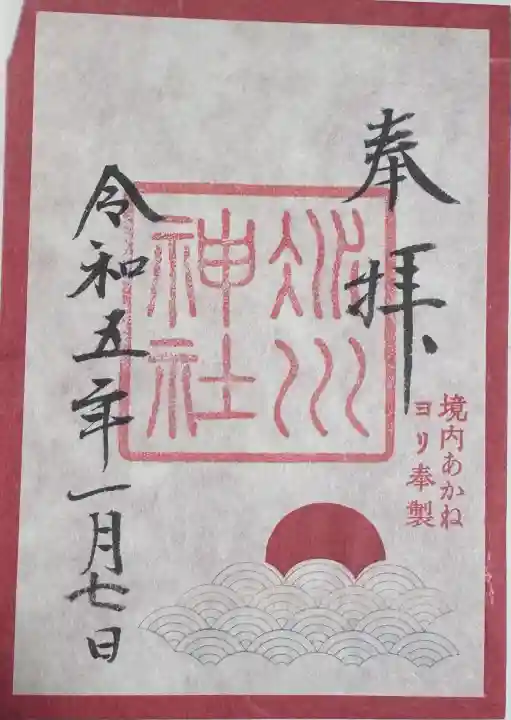 奉拝
境内あかね
ヨリ奉製
氷川
神社
令和五年一月七日